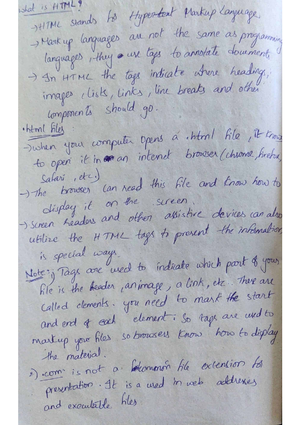 What is HTML?
→ HTML stands for Hypertext Markup Language.
→ Markup languages are not the same as programming
languages, they use tags to annotate documents.
→ In HTML the tags indicate where headings,
images, lists, links, line breaks and other
components should go.
.html files
→ when your computer opens a .html file, it knows
to open it in an internet browser (chrome, firefox,
Safari, etc.)
→ The browser can read this file and know how to
display it on the screen.
→ Screen readers and other assistive devices can also
utilize the HTML tags to present the information
is special ways.
Note: 1) Tags are used to indicate which part of your
file is the header, an image, a link, etc. These are
called elements. you need to mark the start
and end of each element; so tags are used to
markup your files so browsers know how to display
the material.
2) .com is not a common file extension for
presentation. It is a used in web addresses
and executable files